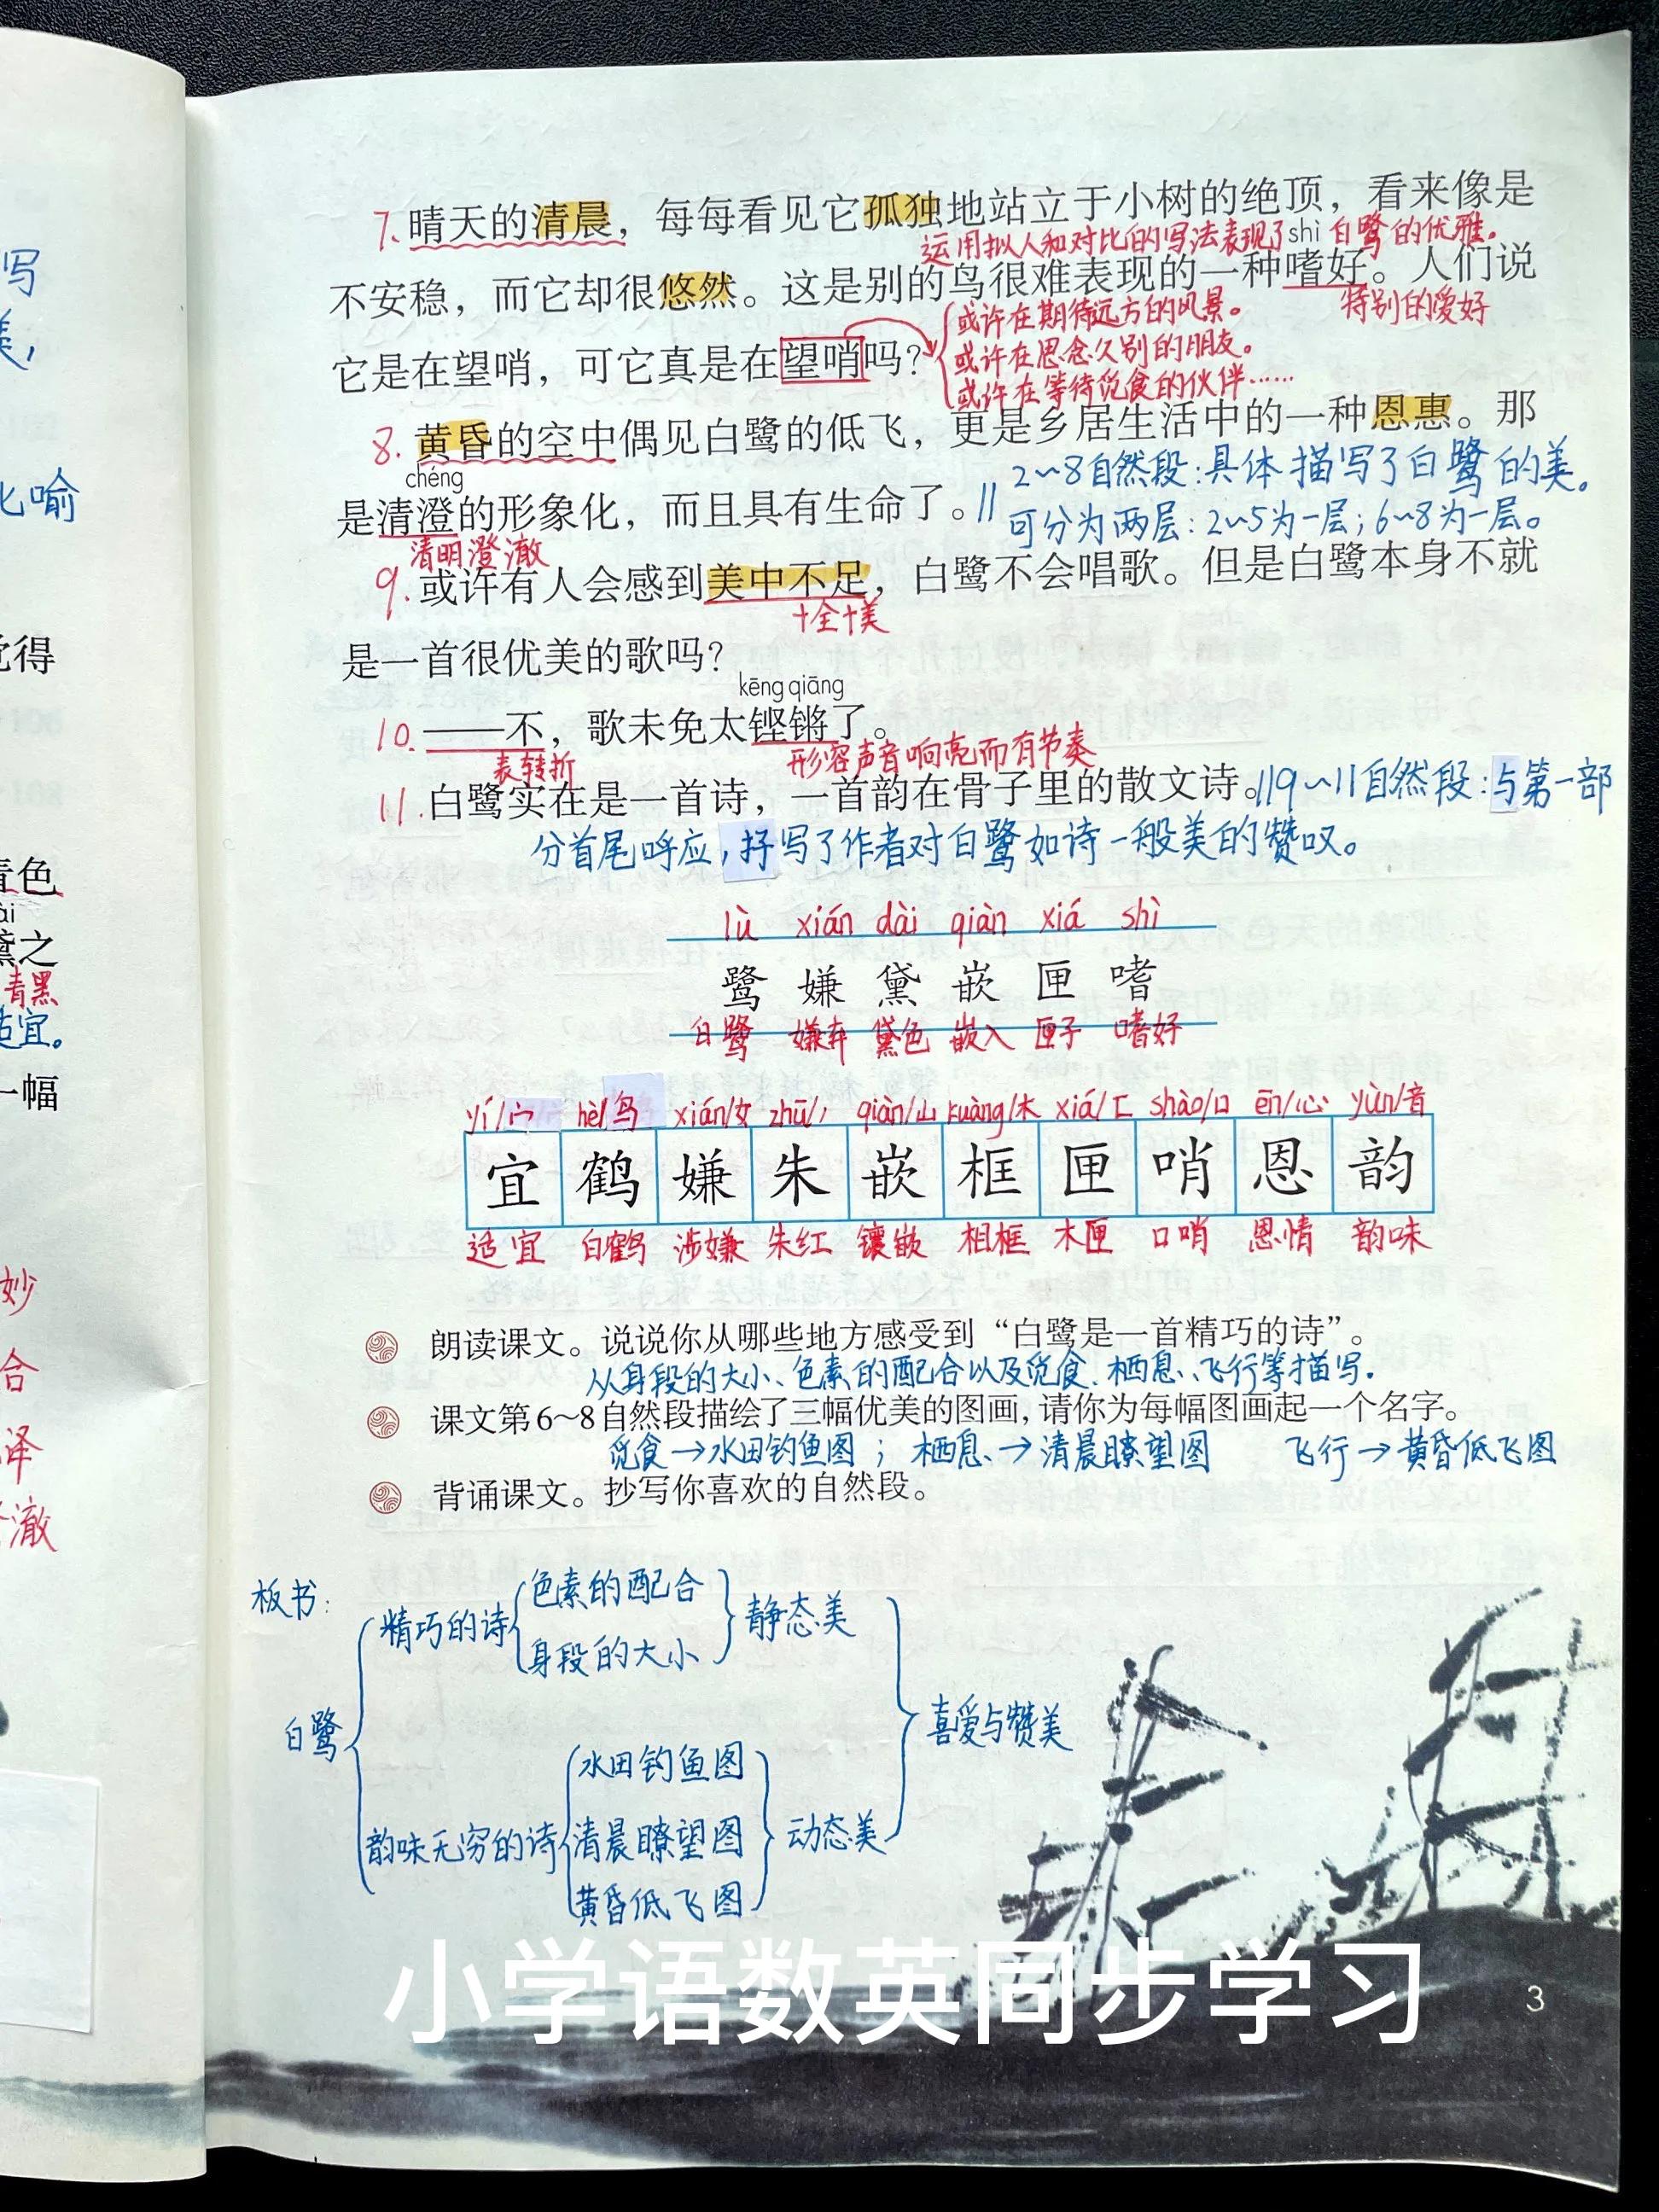 写
美，
比喻
觉得
青色
ài
黛之
青黑
适宜。
一幅
妙
合
泽
澈
7. 晴天的清晨，每每看见它孤独地站立于小树的绝顶，看来像是
运用拟人和对比的写法表现了白鹭的优雅。
shì
不安稳，而它却很悠然。这是别的鸟很难表现的一种嗜好。人们说
特别的爱好
或许在期待远方的风景。
它是在望哨，可它真是在望哨吗？
或许在思念久别的朋友。
或许在等待觅食的伙伴……
8. 黄昏的空中偶见白鹭的低飞，更是乡居生活中的一种恩惠。那
chéng
2~8自然段：具体描写了白鹭的美。
是清澄的形象化，而且具有生命了。||
可分为两层：2~5为一层；6~8为一层。
清明澄澈
9. 或许有人会感到美中不足，白鹭不会唱歌。但是白鹭本身不就
十全十美
是一首很优美的歌吗？
kēng qiāng
10. ——不，歌未免太铿锵了。
表转折 形容声音响亮而有节奏
11. 白鹭实在是一首诗，一首韵在骨子里的散文诗。||9~11自然段：与第一部
分首尾呼应，抒写了作者对白鹭如诗一般美的赞叹。
lù xián dài qiàn xiá shì
鹭 嫌 黛 嵌 匣 嗜
白鹭 嫌弃 黛色 嵌入 匣子 嗜好
yí/宀 hè/鸟 xián/女 zhū/丿 qiàn/山 kuàng/木 xiá/匚 shào/口 ēn/心 yùn/音
宜 鹤 嫌 朱 嵌 框 匣 哨 恩 韵
适宜 白鹤 涉嫌 朱红 镶嵌 相框 木匣 口哨 恩情 韵味
朗读课文。说说你从哪些地方感受到“白鹭是一首精巧的诗”。
从身段的大小、色素的配合以及觅食、栖息、飞行等描写。
课文第6~8自然段描绘了三幅优美的图画，请你为每幅图画起一个名字。
觅食→水田钓鱼图；栖息→清晨瞭望图 飞行→黄昏低飞图
背诵课文。抄写你喜欢的自然段。
板书：
色素的配合
精巧的诗 静态美
身段的大小
白鹭 喜爱与赞美
水田钓鱼图
韵味无穷的诗 清晨瞭望图 动态美
黄昏低飞图
小学语数英同步学习
3